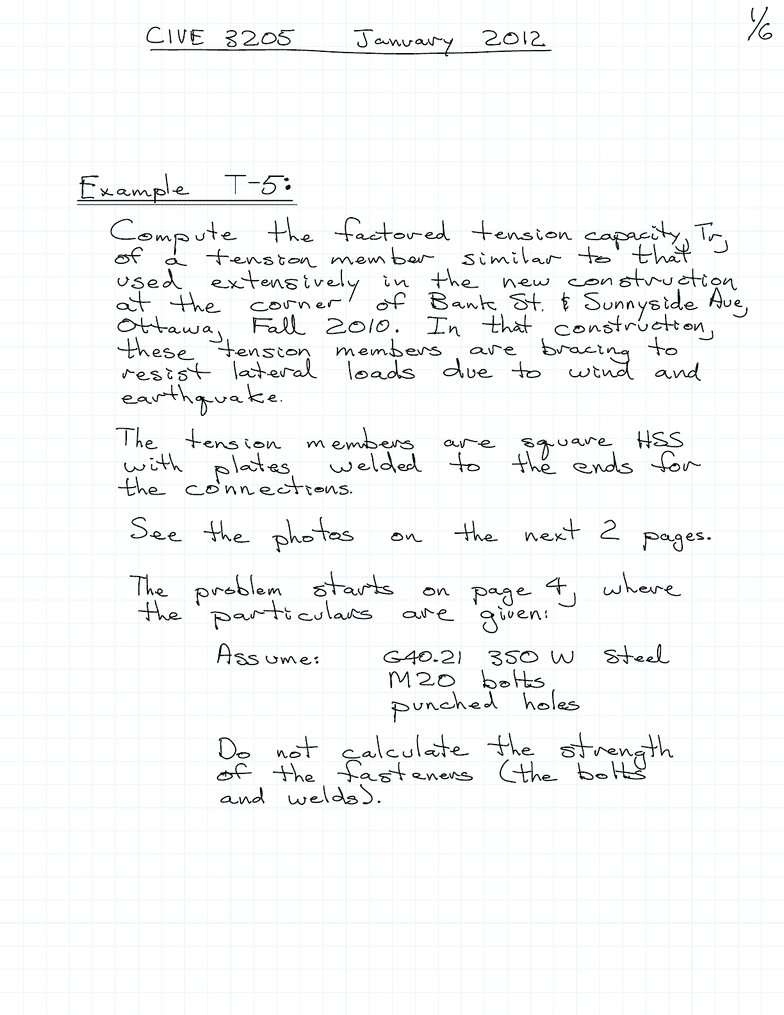 1/6
CIVE 3205 January 2012
Example T-5:
Compute the factored tension capacity, Tr,
of a tension member similar to that
used extensively in the new construction
at the corner of Bank St. & Sunnyside Ave,
Ottawa, Fall 2010. In that construction,
these tension members are bracing to
resist lateral loads due to wind and
earthquake.
The tension members are square HSS
with plates welded to the ends for
the connections.
See the photos on the next 2 pages.
The problem starts on page 4, where
the particulars are given:
Assume: G40.21 350 W steel
M20 bolts
punched holes
Do not calculate the strength
of the fasteners (the bolts
and welds).